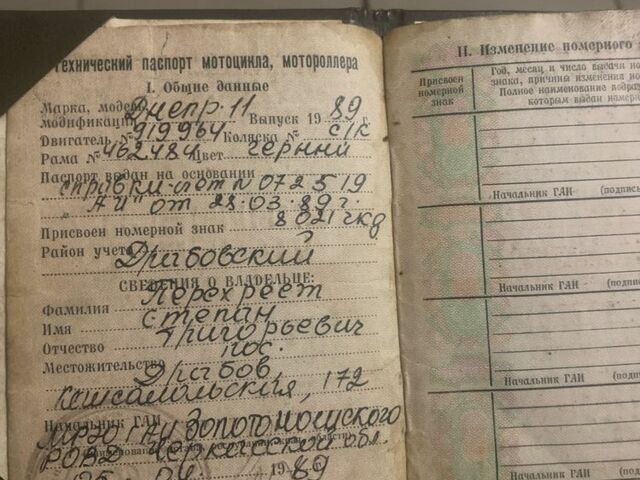 технический паспорт мотоцикла, мотороллера
I. Общие данные
Марка, модель, Днепр-11
модификация Выпуск 1989 г.
Двигатель № 919964 Коляска № с/к
Рама № 462484 Цвет черний
Паспорт выдан на основании
справки-счот N 072519
"АИ" от 28.03.89 г.
Присвоен номерной знак 8021 чкд
Район учета Драбовский
СВЕДЕНИЯ О ВЛАДЕЛЬЦЕ:
Фамилия Перехрест
Имя степан
Отчество Григорьевич
Местожительство пос.
Драбов,
Комсомольская, 172
Начальник ГАИ
МРЭО ГАИ Золотоношского
РОВД Черкасской обл.
1989 г.
II. Изменение номерного
Присвоен номерной знак
Год, месяц и число выдачи но
знака, причины изменения но
Полное наименование подра
которым выдан номер
Начальник ГАИ (подпись
Начальник ГАИ (подпис
Начальник ГАИ (подпи
Начальник ГАИ (под